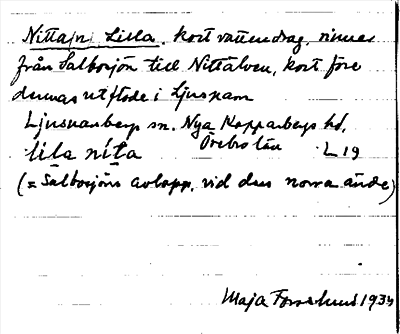 Nittajn, Lilla, kort vattendrag, rinner
från Salbosjön till Nittälven, kort före
dennas utflöde i Ljusnaren
Ljusnarsbergs sn. Nya Kopparbergs hd,
lila nita Örebro län L 19
(= Salbosjöns avlopp, vid dess norra ände)
Maja Forsslund 1934